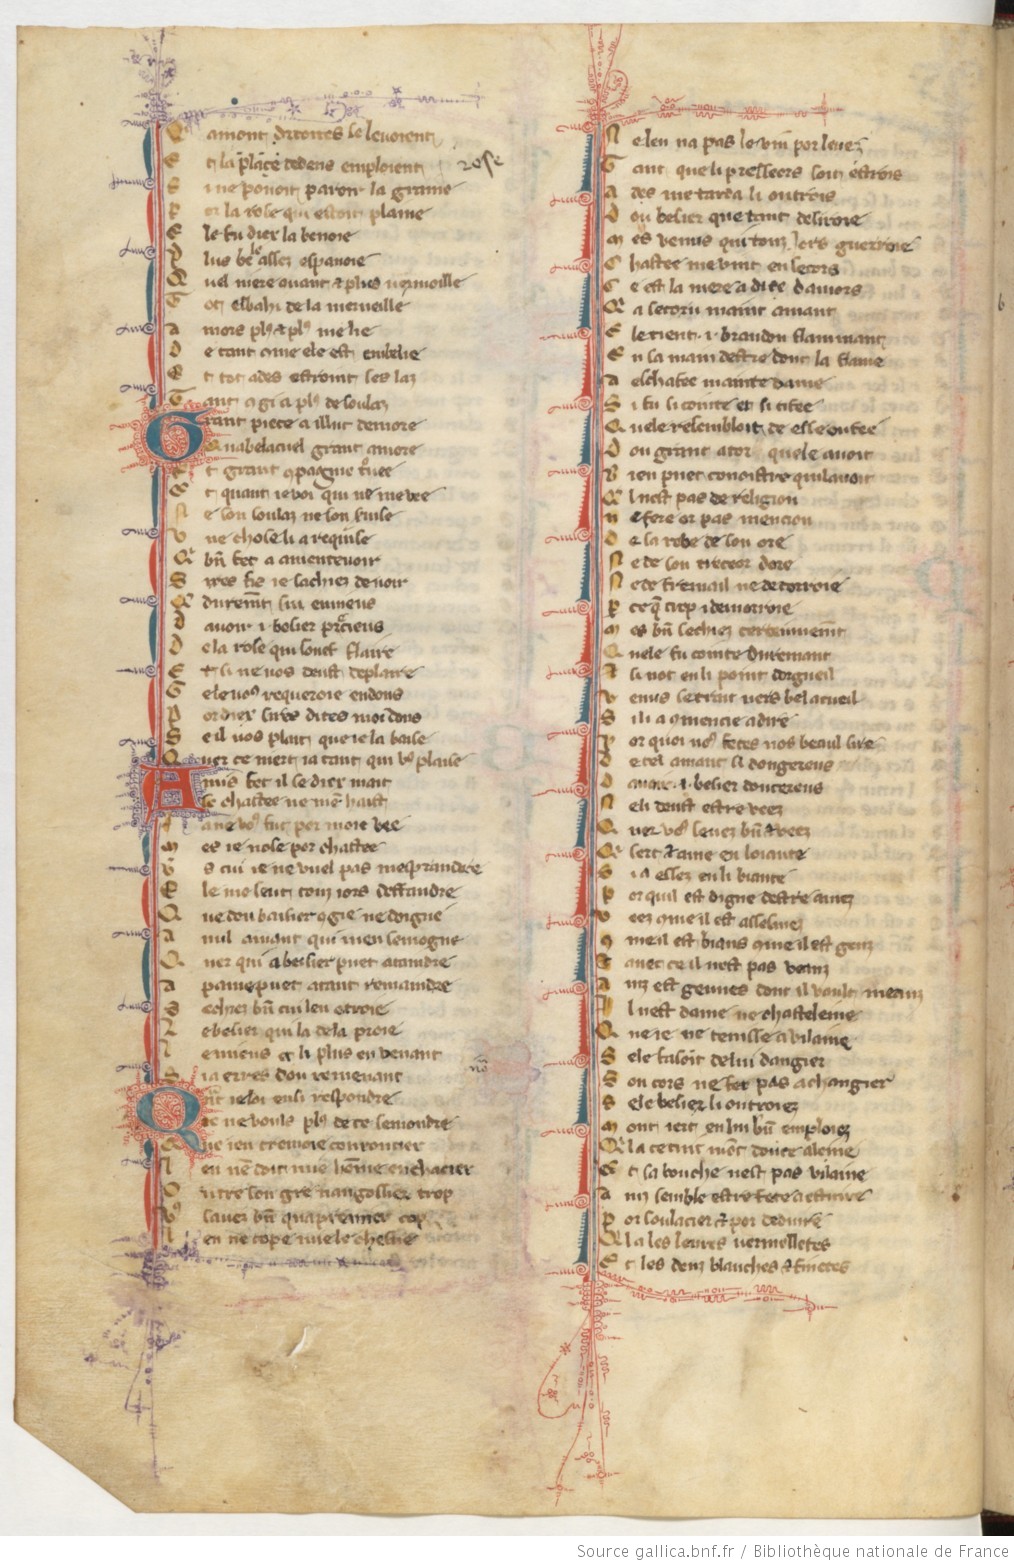 Q amont droites se levoient
E t la place dedens emploient
rose
S i ne pooit paroir la graine
P or la rose qui estoit plaine
E le fu diex la benoie
P lus bele assez espanoie
Q uel niere avant & plus vermoille
T oz esbahi de la merveille
a mors pl9 & pl9 me lie
D e tant cume ele est embelie
E t tot ades estroint ses laz
T ant
G rant piece a illuc demore
Qua belacuel grant amore
E t grant
E t quant je voi qui ne me vee
N e son soulaz ne son servise
U ne chose li a requise
Q bn fet a amentevoir
S ires fis je sachiez de voir
Q durement sui envieus
d avoir .i. besier
D e la rose qui souef flaire
E t si ne vos deust desplaire
G ele vos requeroie en dons
P or diex sires dites moi dons
S e il vos plait que je la baise
Q uer ce niert ja tant qui vos plaise
A mis fet il se diex mait
Se chastee ne men hait
J a ne vos fut por moi vee
M es je nose por chastee
V s cui je ne vuel pas mesprandre
E le me seut touz jors deffandre
Q ue dou baisier ne doigne
a nul amant qui men semoigne
Q uer qui a besier puet ataindre
a paine puet atant remaindre
S achiez bn cui len otroie
L e besier qui la de la proie
L e miens & li plus en venant
S i a erres dou remenant
no
Q nt je loi ensi respondre
Je ne vouls pl9 de ce semondre
Q ue jen cremoie corroucier
N en ne doit mie home enchacier
O utre son gre nangossier trop
V9 savez bn qua premier cop
N en ne cope mie le chesne
N e len na pas le vin por levez
T ant que li pressoers soit estrois
A des me tarda li outrois
D ou besier que tant desiroie
M es venus qui touz jors guerroie
C hastee me vint en secors
C e est la mere a diex damors
Q a secoru maint amant
E le tient .i. brandon flammant
E n sa main destre dont la flame
a eschafee mainte dame
S i fu si cointe et si tifee
Q uele resembloit de esse ou fee
D ou grant ator quele avoit
B ien puet conoistre qui la voit
Q l nest pas de religion
n e fere or pas mencion
D e la robe de son ore
N e de son trecor dore
N e de fremail ne de corroie
P ce q trop i demorroie
M es bn sachiez certeinnement
Q uele fu cointe durement
N si not en li point dorgueil
V enus se trait vers belacueil
S ili a a dire
P or quoi vos fetes vos beau sire
d e cel amant si dongereus
D avoir .i. besier doucereus
N e li deust estre veez
Q uer vos savez bn & veez
Q sert & aime en loiaute
S i a assez en li biaute
P or quil est digne destre amez
V eez cume il est assemez
C ume il est biaus cume il est genz
E avec ce il nest pas
a nz est geunes dont il vault mieux
I l nest dame ne chasteleine
Q ue je ne tenisse a vilaine
S ele fasoit de lui dangier
S on cors ne fet pas a changier
S ele besier li outroiez
M ont iert en lui bn emploiez
Q l a ce cuit mot douce aleine
E t sa bouche nest pas vilaine
a inz semble estre fete a estuire
P or soulacier & por deduire
Q l a les levres vermelletes
E t les denz blanches & si netes
Source gallica.bnf.fr / Bibliothèque nationale de France